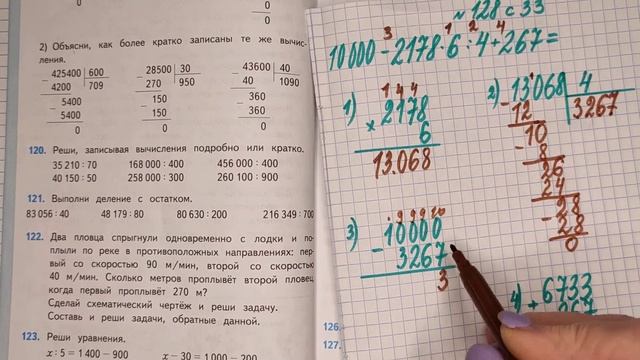 0 0
2) Объясни, как более кратко записаны те же вычис-
ления.
425400 | 600 28500 | 30 43600 | 40
4200 709 270 950 40 1090
5400 150 360
5400 150 360
0 0 0
120. Реши, записывая вычисления подробно или кратко.
35 210 : 70 168 000 : 400 456 000 : 400
40 150 : 50 258 000 : 300 260 100 : 900
121. Выполни деление с остатком.
83 056 : 40 48 179 : 80 80 630 : 200 216 349 : 700
122. Два пловца спрыгнули одновременно с лодки и по-
плыли по реке в противоположных направлениях: пер-
вый со скоростью 90 м/мин, второй со скоростью
40 м/мин. Сколько метров проплывёт второй пловец,
когда первый проплывёт 270 м?
Сделай схематический чертёж и реши задачу.
Составь и реши задачи, обратные данной.
123. Реши уравнения.
x : 5 = 1 400 − 900 x − 30 = 1 000 − 200
126.
127.
№ 128 с 33
3 1 2 4
10000 − 2178 · 6 : 4 + 267 =
1) 1 4 4
× 2178
6
13.068
2) 13068 | 4
− 12 3267
− 10
8
26
24
− 28
28
0
3) 9 9 9 10
− 10000
3267
3
4) + 6733
267